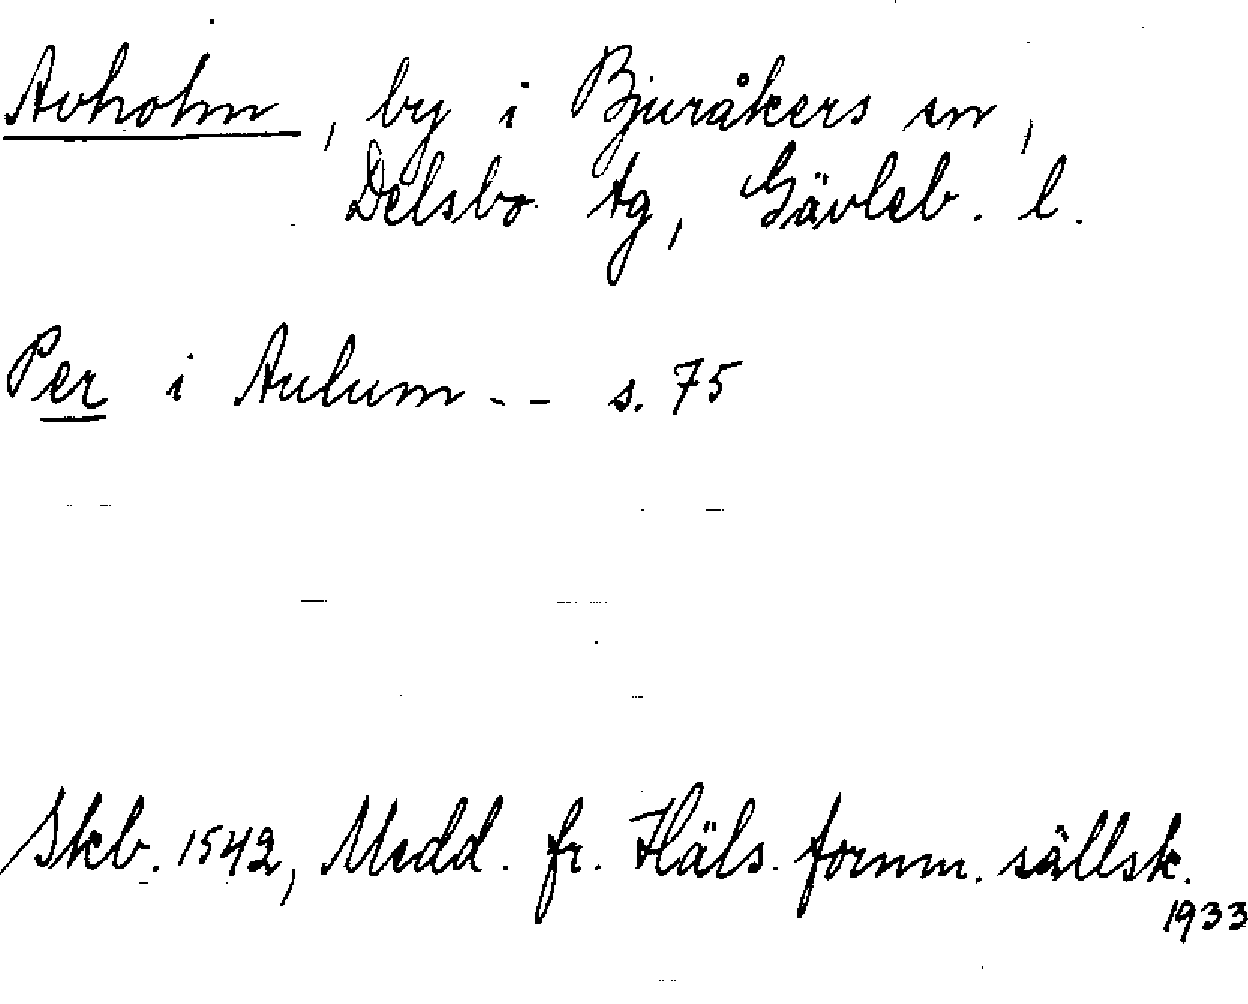 Avholm, by i Bjuråkers sn,
Delsbo tg, Gävleb. l.
Per i Aulum -- s. 75
Skb. 1542, Medd. fr. Häls. fornm. sällsk.
1933